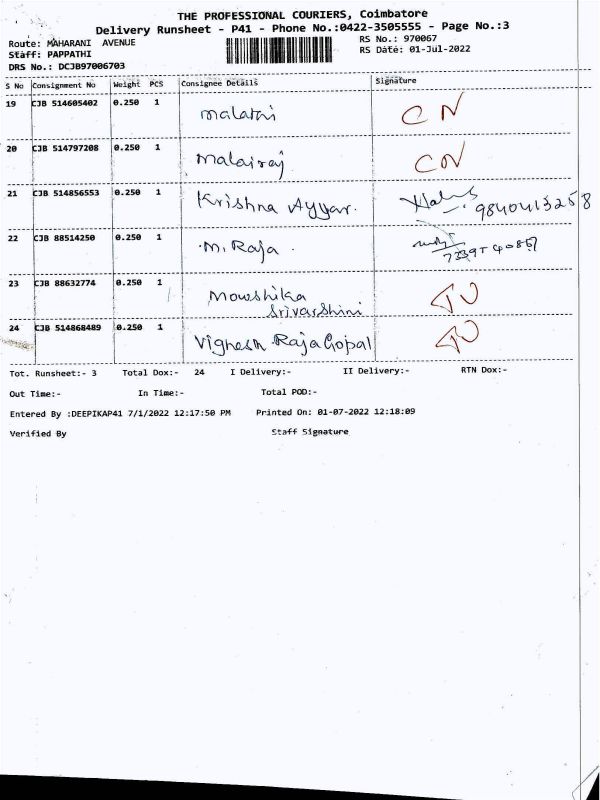 THE PROFESSIONAL COURIERS, Coimbatore
Delivery Runsheet - P41 - Phone No.:0422-3505555 - Page No.:3
Route: MAHARANI AVENUE
RS No.: 970067
Staff: PAPPATHI
RS Date: 01-Jul-2022
DRS No.: DCJB97006703
S No Consignment No Weight PCS Consignee Details Signature
19 CJB 514605402 0.250 1 malathi CN
20 CJB 514797208 0.250 1 Malairaj CN
21 CJB 514856553 0.250 1 Krishna Ayyar. 9840413258
22 CJB 88514250 0.250 1 M. Raja.
23 CJB 88632774 0.250 1 Mowshika
Srivarshini
24 CJB 514868489 0.250 1 Vighesh RajaGopal
Tot. Runsheet:- 3 Total Dox:- 24 I Delivery:- II Delivery:- RTN Dox:-
Out Time:- In Time:- Total POD:-
Entered By :DEEPIKAP41 7/1/2022 12:17:50 PM Printed On: 01-07-2022 12:18:09
Verified By Staff Signature